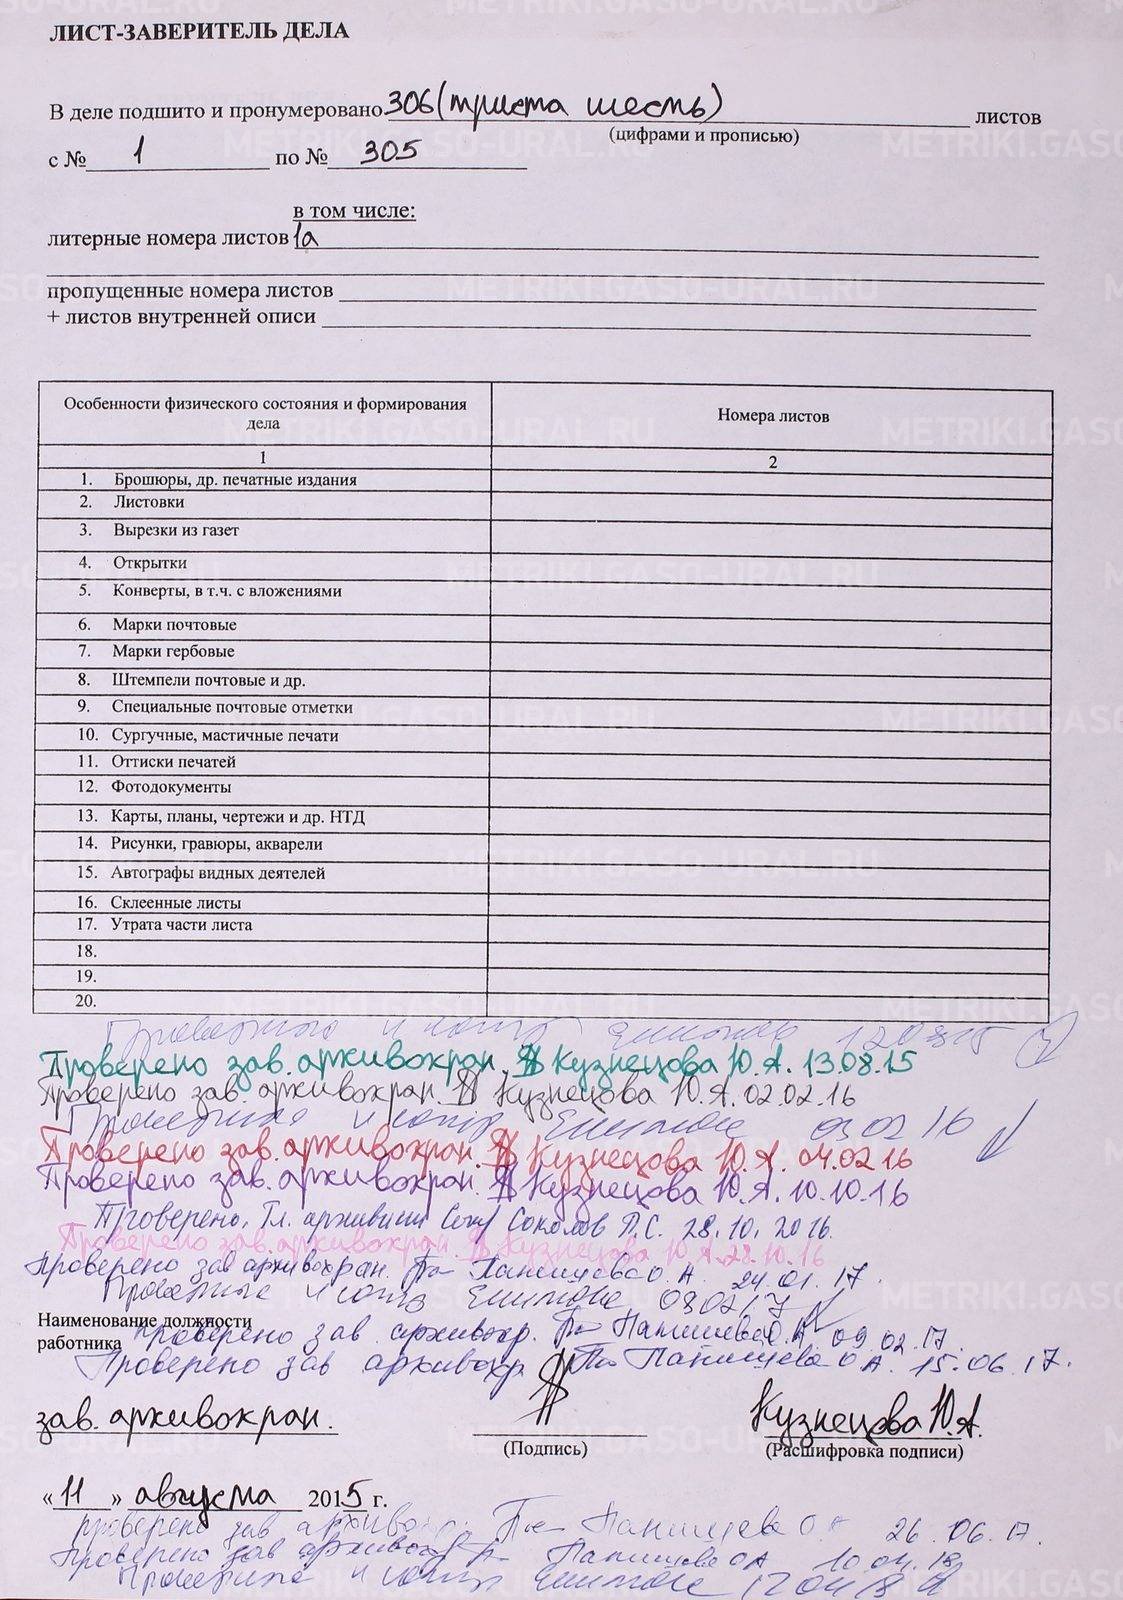 ЛИСТ-ЗАВЕРИТЕЛЬ ДЕЛА
В деле подшито и пронумеровано 306 (триста шесть) листов
(цифрами и прописью)
с № 1 по № 305
в том числе:
литерные номера листов 1а
пропущенные номера листов
+ листов внутренней описи
Особенности физического состояния и формирования дела
Номера листов
1
2
1. Брошюры, др. печатные издания
2. Листовки
3. Вырезки из газет
4. Открытки
5. Конверты, в т.ч. с вложениями
6. Марки почтовые
7. Марки гербовые
8. Штемпели почтовые и др.
9. Специальные почтовые отметки
10. Сургучные, мастичные печати
11. Оттиски печатей
12. Фотодокументы
13. Карты, планы, чертежи и др. НТД
14. Рисунки, гравюры, акварели
15. Автографы видных деятелей
16. Склеенные листы
17. Утрата части листа
18.
19.
20.
Проверено зав. архивохран. Кузнецова Ю.А. 13.08.15
Проверено зав. архивохран. Кузнецова Ю.А. 02.02.16
03 02 16
Проверено зав. архивохран. Кузнецова Ю.А. 04.02.16
Проверено зав. архивохран. Кузнецова Ю.А. 10.10.16
Проверено, Гл. архивист Соколов П.С. 28.10.2016.
Проверено зав. архивохран. Кузнецова Ю.А. 28.10.16
Проверено зав архивохран. О.А. 24.01.17.
Наименование должности
работника
проверено зав. архивохр. О.А. 09.02.17.
Проверено зав архивохр. О А. 15.06.17.
зав. архивохран.
Кузнецова Ю.А.
(Подпись)
(Расшифровка подписи)
«11» августа 2015 г.
проверено зав архивохр. О А 26.06.17.
Проверено зав архивохр О А 10.04.18
METRIKI.GASO-URAL.RU